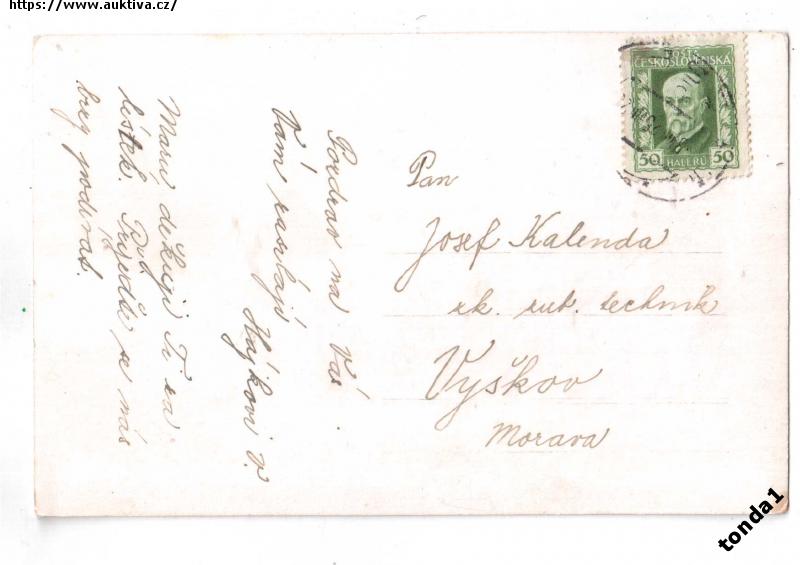 https://www.auktiva.cz/
POŠTA
ČESKOSLOVENSKÁ
50 HALÉŘŮ 50
Pan
Josef Kalenda
zk. zub. technik
Vyškov
Morava
Pozdrav na Vás
Vám zasílají
Hájkovi V.
Maru děkuji Ti za
lístek. Přijeďte se nás
brzy podívat.
tonda1